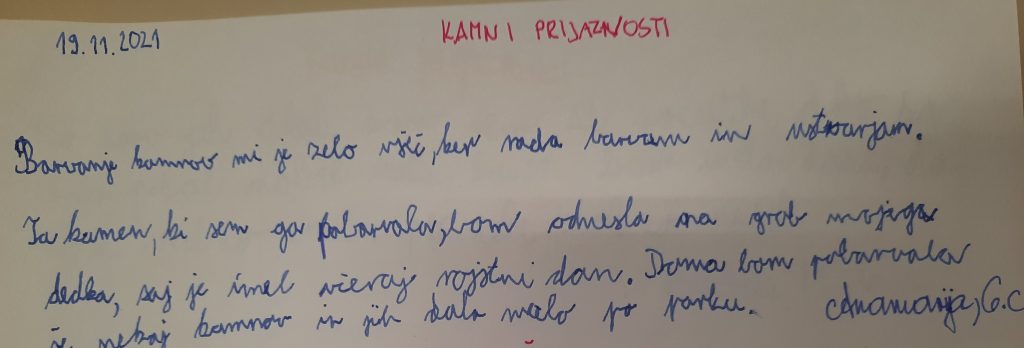 19.11.2021
KAMNI PRIJAZNOSTI
Barvanje kamnov mi je zelo všeč, ker rada barvam in ustvarjam.
Ta kamen, ki sem ga pobarvala, bom odnesla na grob mojega
dedka, saj je imel včeraj rojstni dan. Doma bom pobarvala
še nekaj kamnov in jih dala malo po parku. Anamarija, 6.c